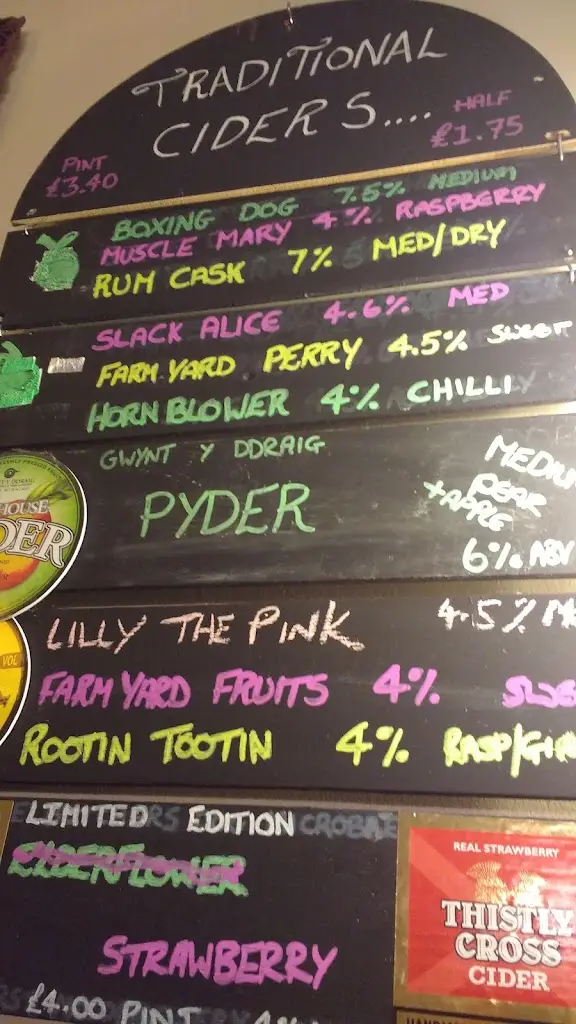 TRADITIONAL
CIDERS....
PINT
£3.40
HALF
£1.75
BOXING DOG 7.5% MEDIUM
MUSCLE MARY 4% RASPBERRY
RUM CASK 7% MED/DRY
SLACK ALICE 4.6% MED
FARM YARD PERRY 4.5% SWEET
HORN BLOWER 4% CHILLI
GWYNT Y DDRAIG
PYDER
MEDIUM
PEAR
+ APPLE
6% ABV
HOUSE
DER
LILLY THE PINK 4.5%
VOL
FARM YARD FRUITS 4%
ROOTIN TOOTIN 4% RASP/
LIMITED EDITION
ELDERFLOWER
STRAWBERRY
£4.00 PINT 4%
REAL STRAWBERRY
THISTLY
CROSS
CIDER